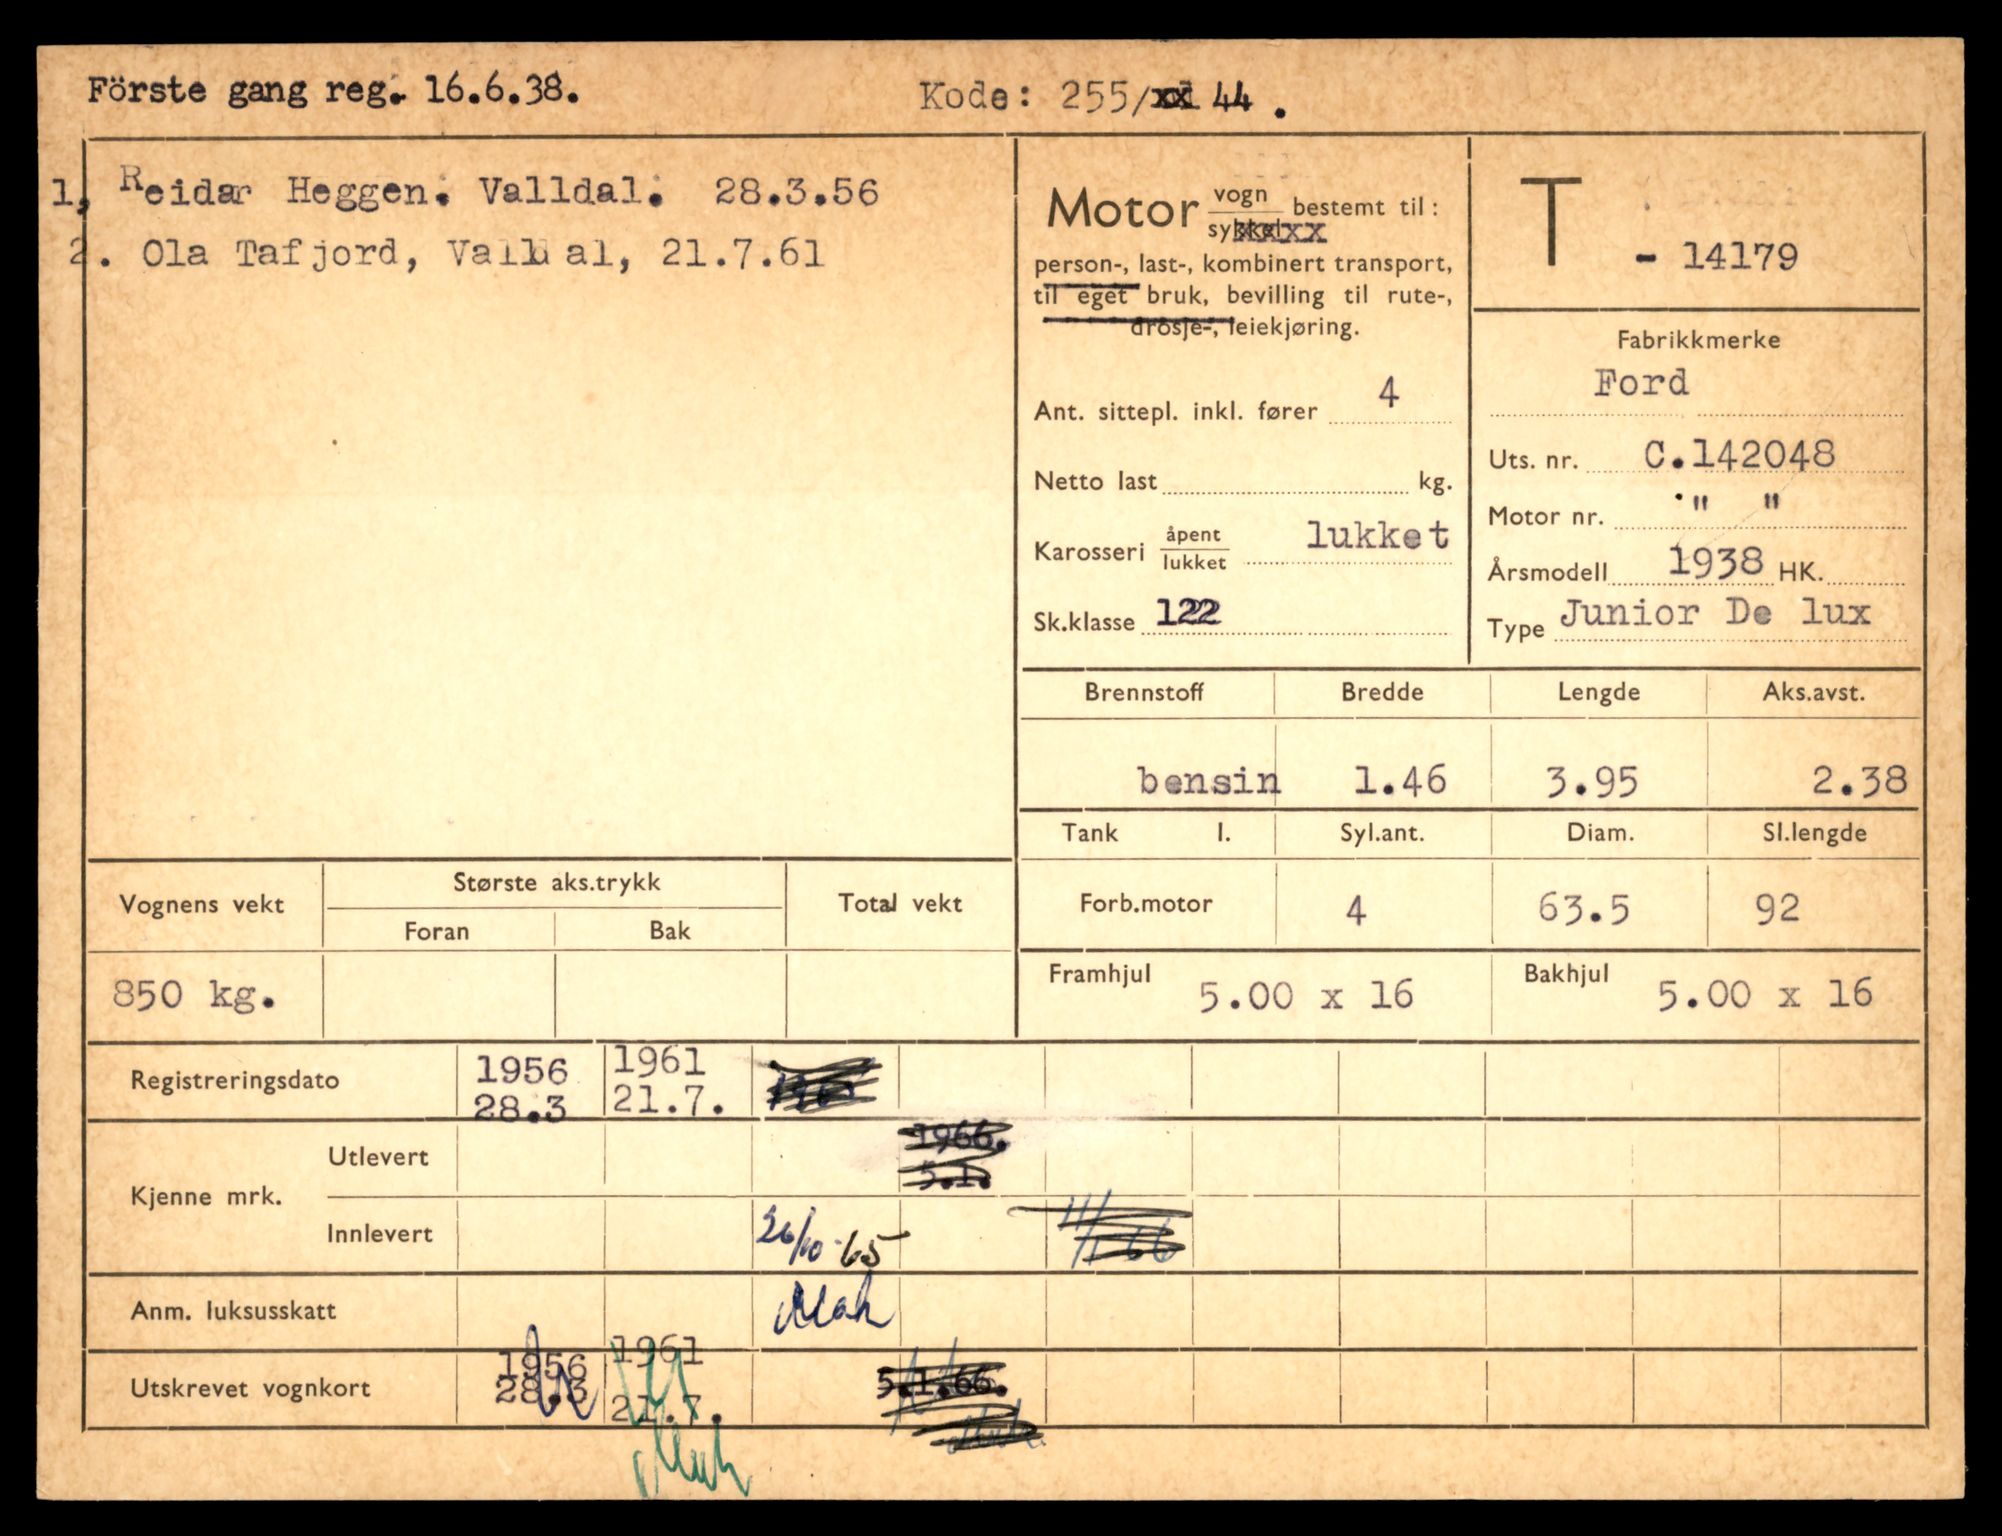 Förste gang reg. 16.6.38.
Kode: 255/xx 44 .
1, Reidar Heggen. Valldal. 28.3.56
2. Ola Tafjord, Valldal, 21.7.61
Motor vogn sykkel bestemt til:
person-, last-, kombinert transport,
til eget bruk, bevilling til rute-,
drosje-, leiekjøring.
Ant. sittepl. inkl. fører 4
Netto last kg.
Karosseri åpent lukket lukket
Sk.klasse 122
T - 14179
Fabrikkmerke
Ford
Uts. nr. C.142048
Motor nr. " "
Årsmodell 1938 HK.
Type Junior De lux
Brennstoff Bredde Lengde Aks.avst.
bensin 1.46 3.95 2.38
Tank l. Syl.ant. Diam. Sl.lengde
Forb.motor 4 63.5 92
Framhjul 5.00 x 16 Bakhjul 5.00 x 16
Vognens vekt Største aks.trykk Total vekt
Foran Bak
850 kg.
Registreringsdato 1956 28.3 1961 21.7.
Kjenne mrk.
Utlevert 1966. 5.1.
Innlevert 26/10-65 11/1 66
Anm. luksusskatt
Utskrevet vognkort 1956 28.3 1961 21.7. 5.1.66.